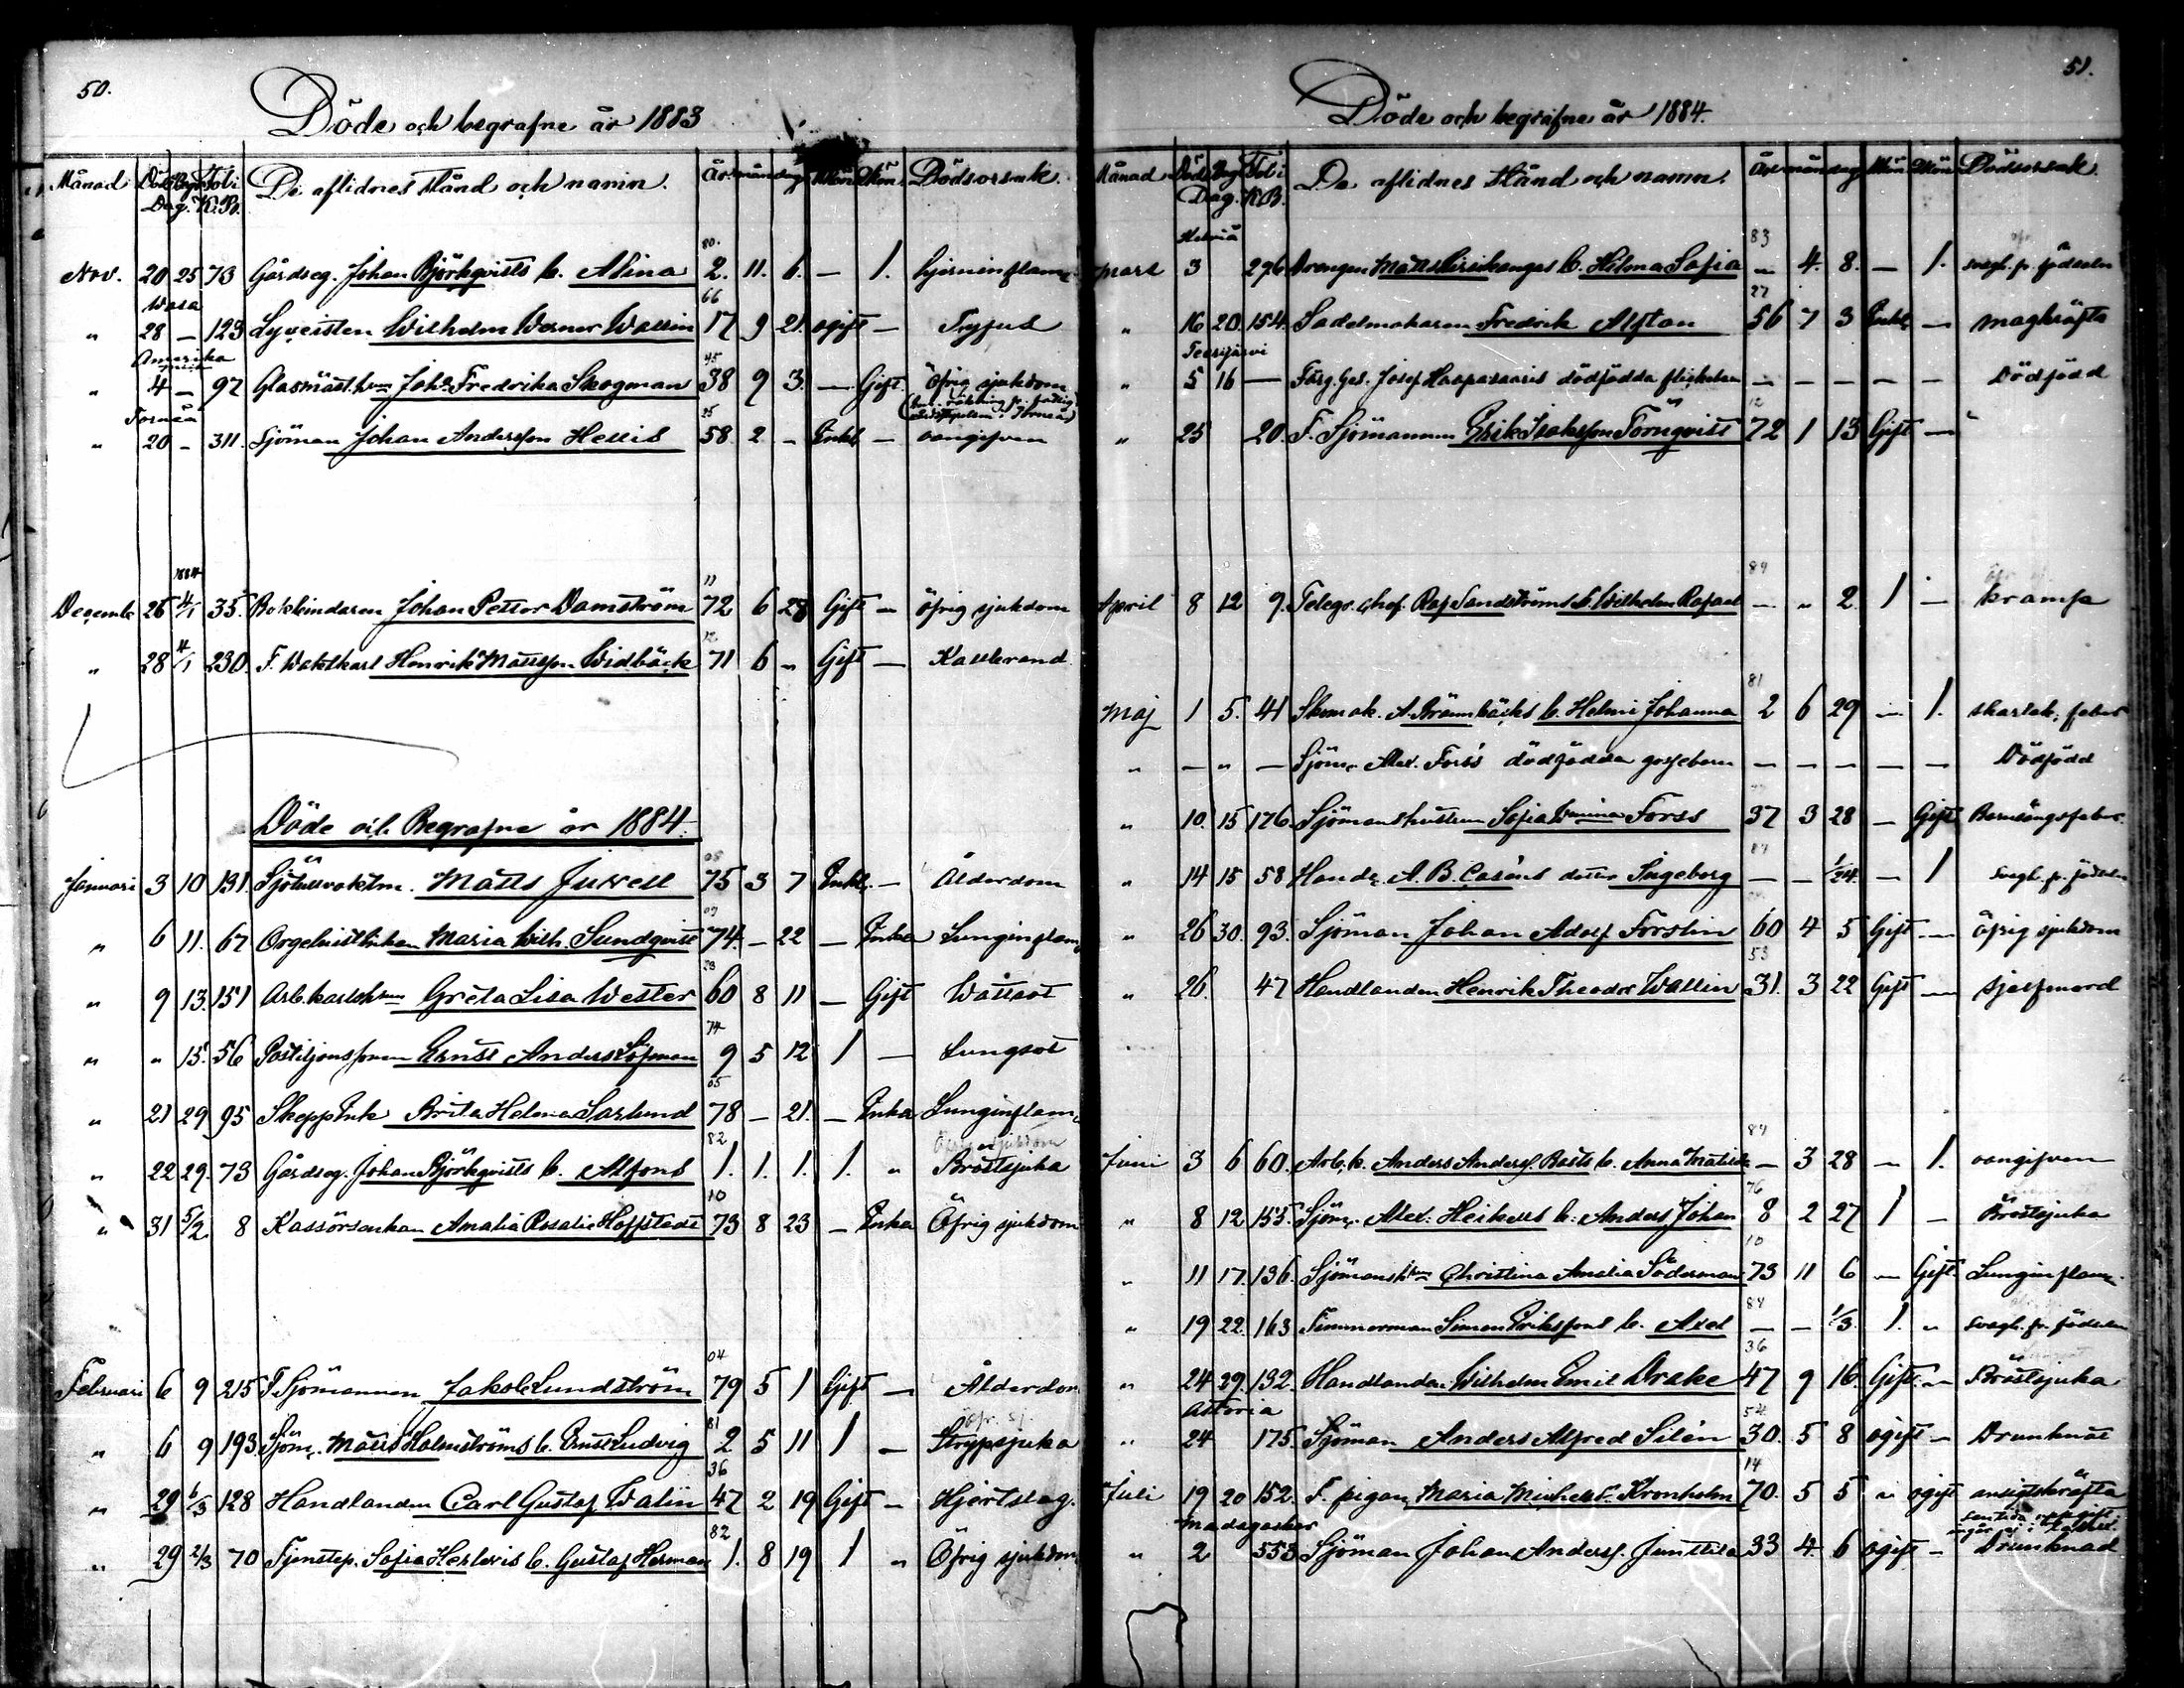 50.
Döde och begrafne år 1883
Månad Död Begr. Fol. i De aflidnes stånd och namn. År mån dag Mön Qkön Dödsorsak.
Dag. K.B.
80.
Nov. 20 25 73 Gårdseg. Johan Björkqvists b. Alina 2. 11. 6. — 1. hjerninflamn
Wasa 66
" 28 — 123 Lyceisten Wilhelm Werner Wallin 17 9 21. ogift — Tyfus
Amerika 45
" 4 — 97 Glasmäst. hn Joha Fredrika Skogman 38 9 3. — Gift Öfrig sjukdom
Torneå 25
" 20 — 311. Sjöman Johan Andersson Hellis 58. 2 - Enkl. — oangifven
1884 11
Decemb. 26 4/1 35. Bokbindaren Johan Petter Damström 72 6 28 Gift — öfrig sjukdom
12
" 28 4/1 230. F. Waktkarl Henrik Mattsson Widbäck 71 6 " Gift — Kallbrand
Döde och Begrafne år 1884.
08
Januari 3 10 131. Sjötullvaktm. Matts Juvell 75 3 7 Enkl. — Ålderdom
09
" 6 11. 67 Orgelnistenkan Maria Wilh. Sundqvist 74. — 22 — Enka Lunginflam
23
" 9 13. 151 Arb. karlshn Greta Lisa Wester 60 8 11 — Gift Wattsot
74
" " 15. 56 Postiljonssonen Ernst Anders Löfman 9 5 12 1 — Lungsot
05
" 21 29 95 Skepp Enk Brita Helena Saslund 78 — 21. — Enka Lunginflam.
82 Öfrig sjukdom
" 22 29. 73 Gårdseg. Johan Björkqvists b. Alfons 1. 1. 1. 1. " Bröstsjuka
10
" 31 5/2 8 Kassörsenkan Amalia Rosalie Hoffstedt 73 8 23 — Enka Öfrig sjukdom
04
Februari 6 9 215 F Sjömannen Jakob Lundström 79 5 1 Gift — Ålderdom
81 Öfr. sj.
" 6 9 193. Sjöm. Matts Holmströms b. Ernst Ludvig 2 5 11 1 — Strypsjuka
36
" 29 6/3 128 Handlanden Carl Gustaf Walin 47 2 19 Gift — Hjertslag.
82
" 29 2/3 70 Tjenstep. Sofia Herlevis b. Gustaf Herman 1. 8 19 1 " Öfrig sjukdom
51.
Döde och begrafne år 1884.
Månad Död Begr Fol. i De aflidnes stånd och namn. År mån dag Mön Qkön Dödsorsak
Dag. K.B.
83
Mars 3 296 Drengen Matts b. Hilma Sofia — 4. 8. — 1. svagh. fr. födseln
27
" 16 20. 154. Sadelmakaren Fredrik Alftan 56 7 3 Enkl. — magkräfta
Teerijärvi
" 5 16 — Färg. Ges. Josef Haapasaaris dödfödda flickebarn — — — — — Dödfödd
12
" 25 20. F. Sjömannen Erik Isaksson Törnqvist 72 1 13 Gift —
84
April 8 12 9. Telegr. Chef. Raf. Sandströms b. Wilhelm Rafael — " 2. 1 — kramp
81
Maj 1 5. 41 Skomak. A. Brännbäcks b. Helmi Johanna 2 6 29 — 1. skarlak. feber
" — " — Sjöm. Alex. Forss' dödfödda gossebarn — — — — — Dödfödd
" 10. 15 176. Sjömanshustrun Sofia Wmina Forss 37 3 28 — Gift Barnsängsfeber.
84
" 14 15 58 Handl. A. B. Caséns dotter Ingeborg — — 1/24. — 1 svagh. fr. födseln
" 26 30. 93. Sjöman Johan Adolf Forslin 60 4 5 Gift — öfrig sjukdom
53
" 26. 47 Handlanden Henrik Theodor Wallin 31. 3 22 Gift — sjelfmord
84
Juni 3 6 60. Arb. k. Anders Anderss. Basts b. Anna Matilda — 3 28 — 1. oangifven
76
" 8 12 155. Sjöm. Alex. Heikells b. Anders Johan 8 2 27 1 — Bröstsjuka
10
" 11 17. 136. Sjömanshn Christina Amalia Söderman 73 11 6 — Gift. Lunginflam.
84
" 19 22. 163 Timmerman Simon Erikssons b. Axel — — 1/3. 1. " svagh. fr. födseln
36
" 24 29. 132. Handlanden Wilhelm Emil Drake 47 9 16. Gift. — Bröstsjuka
Astoria 54
" 24 175. Sjöman Anders Alfred Silén 30. 5 8 ogift — Drunknat
14
Juli 19 20 152. F. pigan Maria Michelsd. Kronholm 70. 5 5 " ogift ansigtskräfta
Madagaskar
" 2 553 Sjöman Johan Anderss. Junttila 33 4. 6 ogift — Drunknad